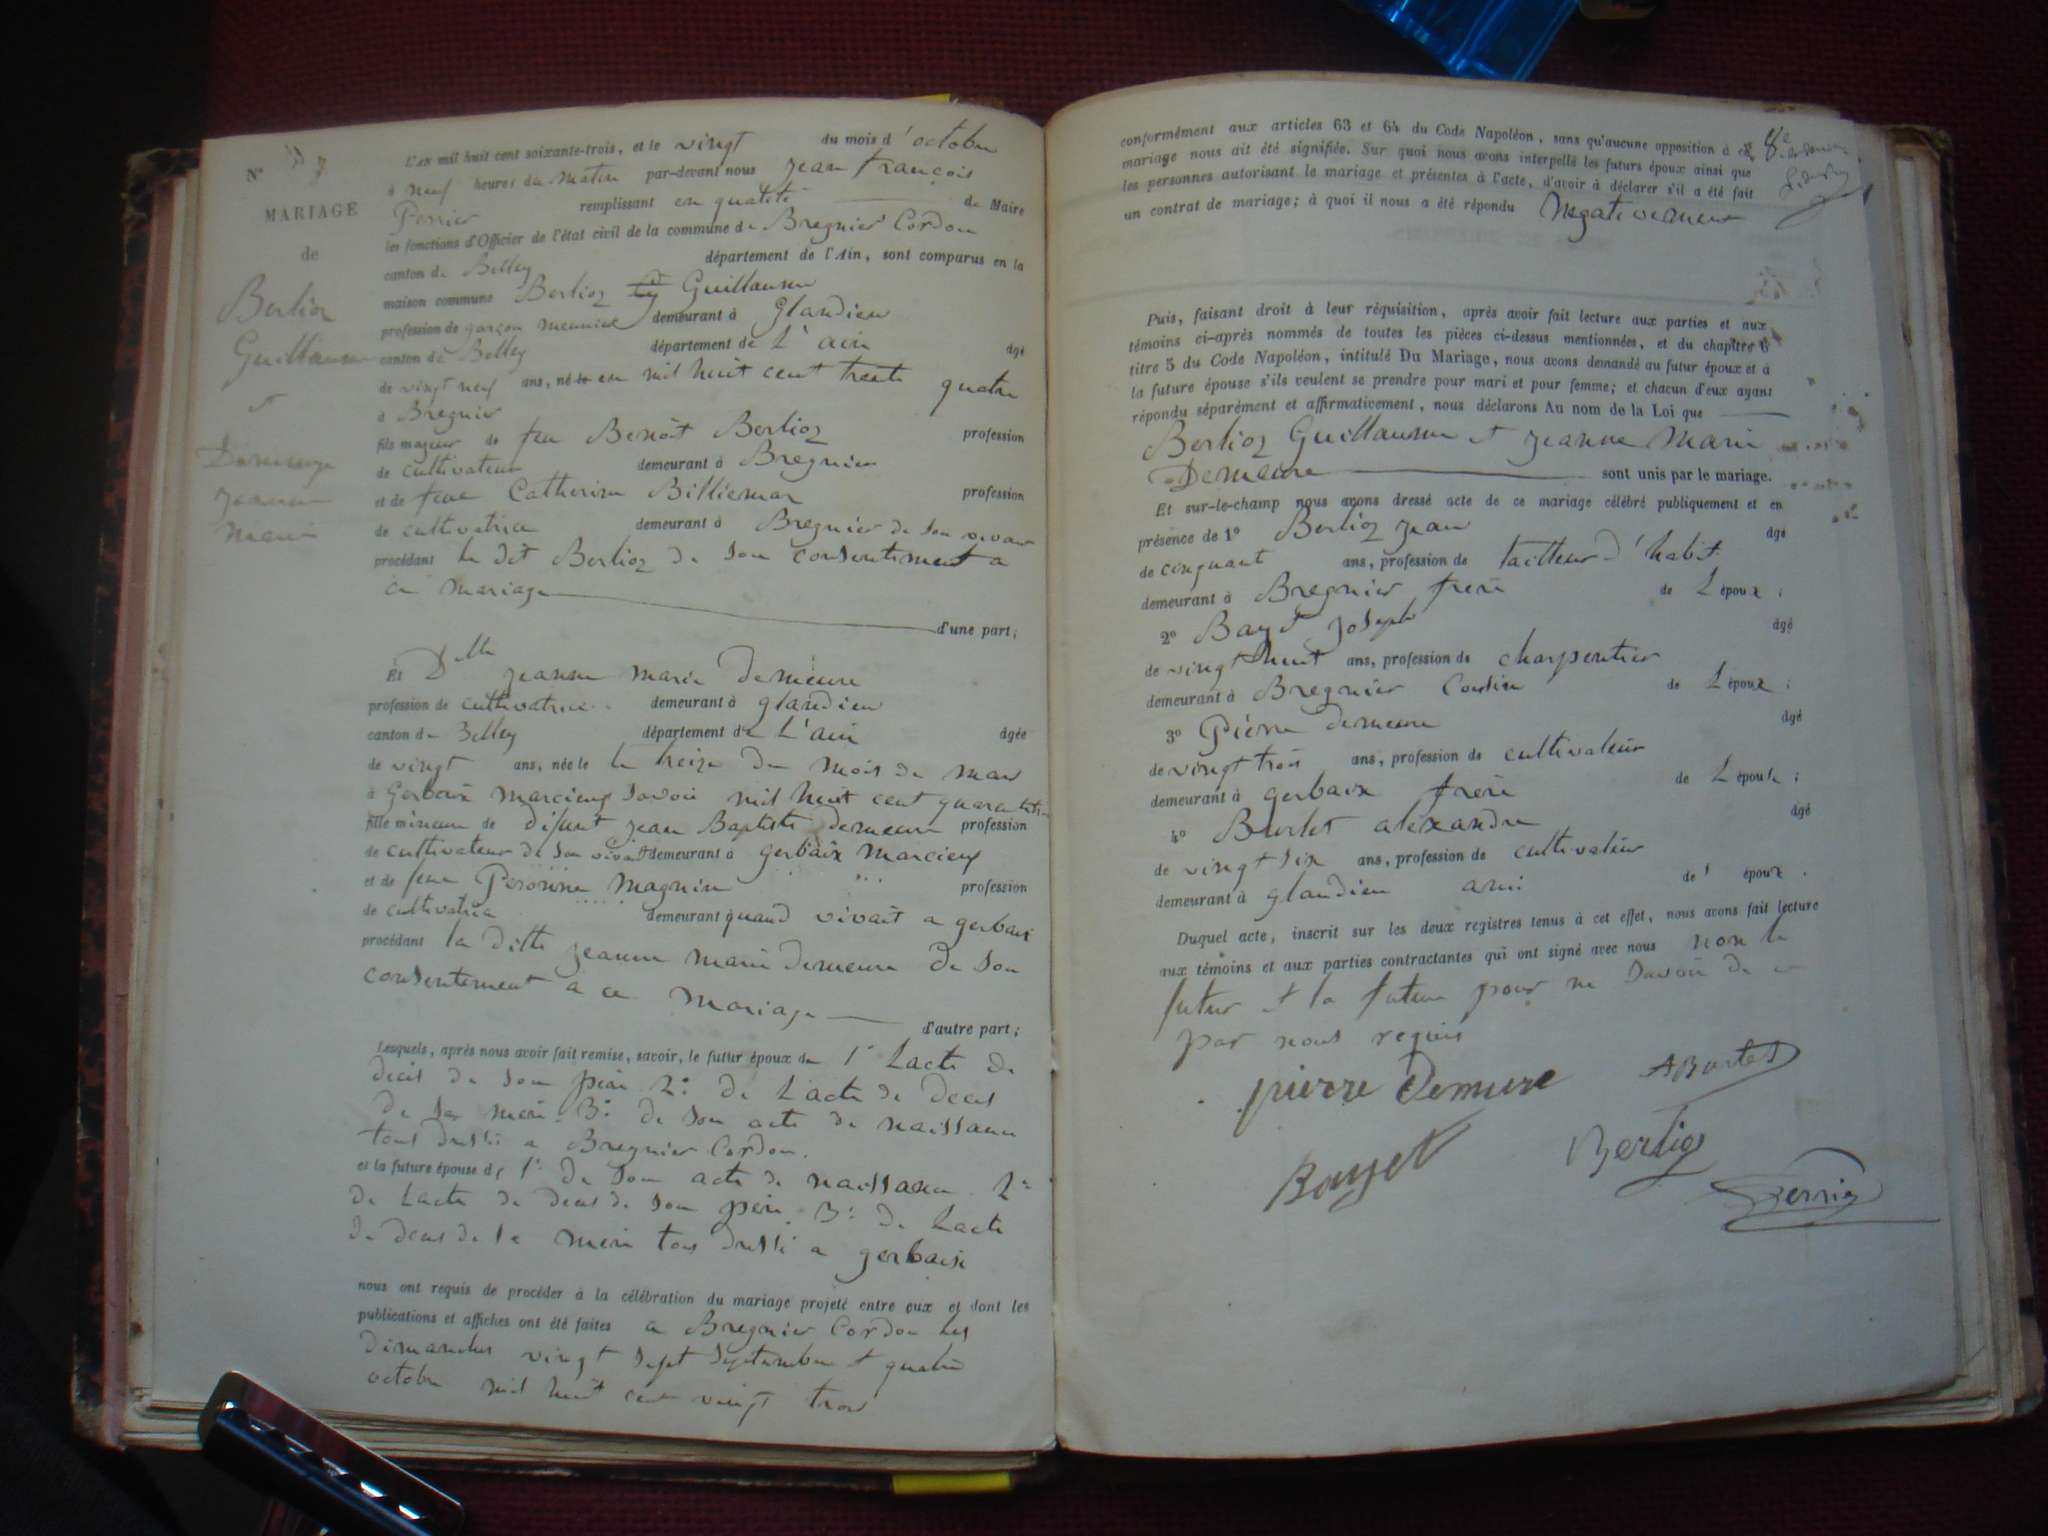 N° 7
MARIAGE
de
Berlioz
Guillaume
et
Demeure
Jeanne
Marie
L'AN mil huit cent soixante-trois, et le vingt du mois d'octobre
à neuf heures du matin par-devant nous Jean François
Perrier remplissant en qualité de Maire
les fonctions d'Officier de l'état civil de la commune de Bregnier Cordon
canton de Belley département de l'Ain, sont comparus en la
maison commune Berlioz Guillaume
profession de garçon meunier demeurant à Glandieu
canton de Belley département de L'ain âgé
de vingt neuf ans, né en mil huit cent trente quatre
à Bregnier
fils majeur de feu Benoit Berlioz profession
de cultivateur demeurant à Bregnier
et de feue Catherine Billiemaz profession
de cultivatrice demeurant à Bregnier de son vivant
procédant le dit Berlioz de son consentement a
ce mariage d'une part;
Et Dlle Jeanne Marie Demeure
profession de cultivatrice demeurant à glandieu
canton de Belley département de L'ain âgée
de vingt ans, née le treize du mois de mars
à Gerbaix Marcieux Savoie mil huit cent quarante
fille mineure de défunt Jean Baptiste Demeure profession
de cultivateur de son vivant demeurant à gerbaix Marcieux
et de feue Peronne Magnin profession
de cultivatrice demeurant quand vivait a gerbaix
procédant la ditte Jeanne Marie Demeure de son
consentement à ce Mariage d'autre part;
Lesquels, après nous avoir fait remise, savoir, le futur époux de 1° Lacte de
decès de son père 2° de Lacte de deces
de sa mère 3° de son acte de naissance
tous dressé a Bregnier Cordon.
et la future épouse de 1° de son acte de naissance 2°
de Lacte de deces de son père 3° de Lacte
de deces de sa mère tous dressé a gerbaix
nous ont requis de procéder à la célébration du mariage projeté entre eux et dont les
publications et affiches ont été faites a Bregnier Cordon les
dimanches vingt sept septembre et quatre
octobre mil huit cent vingt trois
conformément aux articles 63 et 64 du Code Napoléon, sans qu'aucune opposition à ce
mariage nous ait été signifiée. Sur quoi nous avons interpellé les futurs époux ainsi que
les personnes autorisant le mariage et présentes à l'acte, d'avoir à déclarer s'il a été fait
un contrat de mariage; à quoi il nous a été répondu Negativement
Puis, faisant droit à leur réquisition, après avoir fait lecture aux parties et aux
témoins ci-après nommés de toutes les pièces ci-dessus mentionnées, et du chapitre 6
titre 5 du Code Napoléon, intitulé Du Mariage, nous avons demandé au futur époux et à
la future épouse s'ils veulent se prendre pour mari et pour femme; et chacun d'eux ayant
répondu séparément et affirmativement, nous déclarons Au nom de la Loi que
Berlioz Guillaume et Jeanne Marie
Demeure sont unis par le mariage.
Et sur-le-champ nous avons dressé acte de ce mariage célébré publiquement et en
présence de 1° Berlioz Jean âgé
de cinquant ans, profession de tailleur d'habit
demeurant à Bregnier frère de L'époux;
2° Bayet Joseph âgé
de vingt huit ans, profession de charpentier
demeurant à Bregnier Cousin de L'époux;
3° Pierre demeure âgé
de vingt trois ans, profession de cultivateur
demeurant à gerbaix frère de L'épouse;
4° Burlet alexandre âgé
de vingt six ans, profession de cultivateur
demeurant à glandieu ami de l'époux.
Duquel acte, inscrit sur les deux registres tenus à cet effet, nous avons fait lecture
aux témoins et aux parties contractantes qui ont signé avec nous non le
futur et la future pour ne savoir de ce
par nous requis
pierre Demeure
Bayet
Berlioz
Perrier